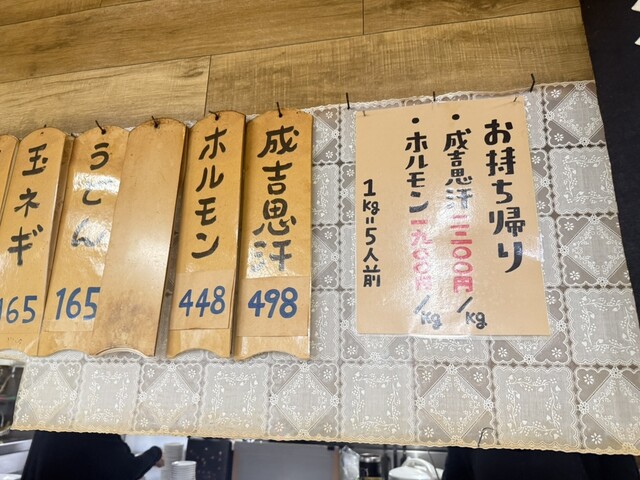 お持ち帰り
・成吉思汗二二〇〇円/kg
・ホルモン一九〇〇円/kg
1kg=5人前
成吉思汗
498
ホルモン
448
うどん
165
玉ネギ
165